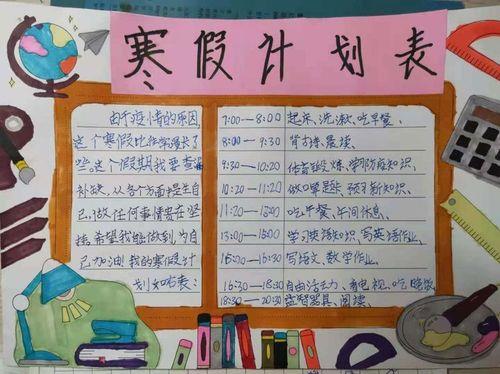 寒假计划表
由于疫情的原因
这个寒假比往常增长了
些。这个假期我要查漏
补缺，从各个方面提升自
己，做任何事情贵在坚
持，希望我能做到，为自
己加油！我的寒假计
划如下表：
7:00—8:00 起床、洗漱、吃早餐、
8:00—9:30 背古诗、晨读、
9:30—10:20 体育锻炼、学习防疫知识、
10:20—11:20 做口算题、预习新知识、
11:20— 吃午餐、午间休息、
13:00— 学习英语知识、写英语作业、
写语文、数学作业、
16:30—18:30 自由活动、看电视、吃晚饭、
18:30—20:30 益智器具、阅读、